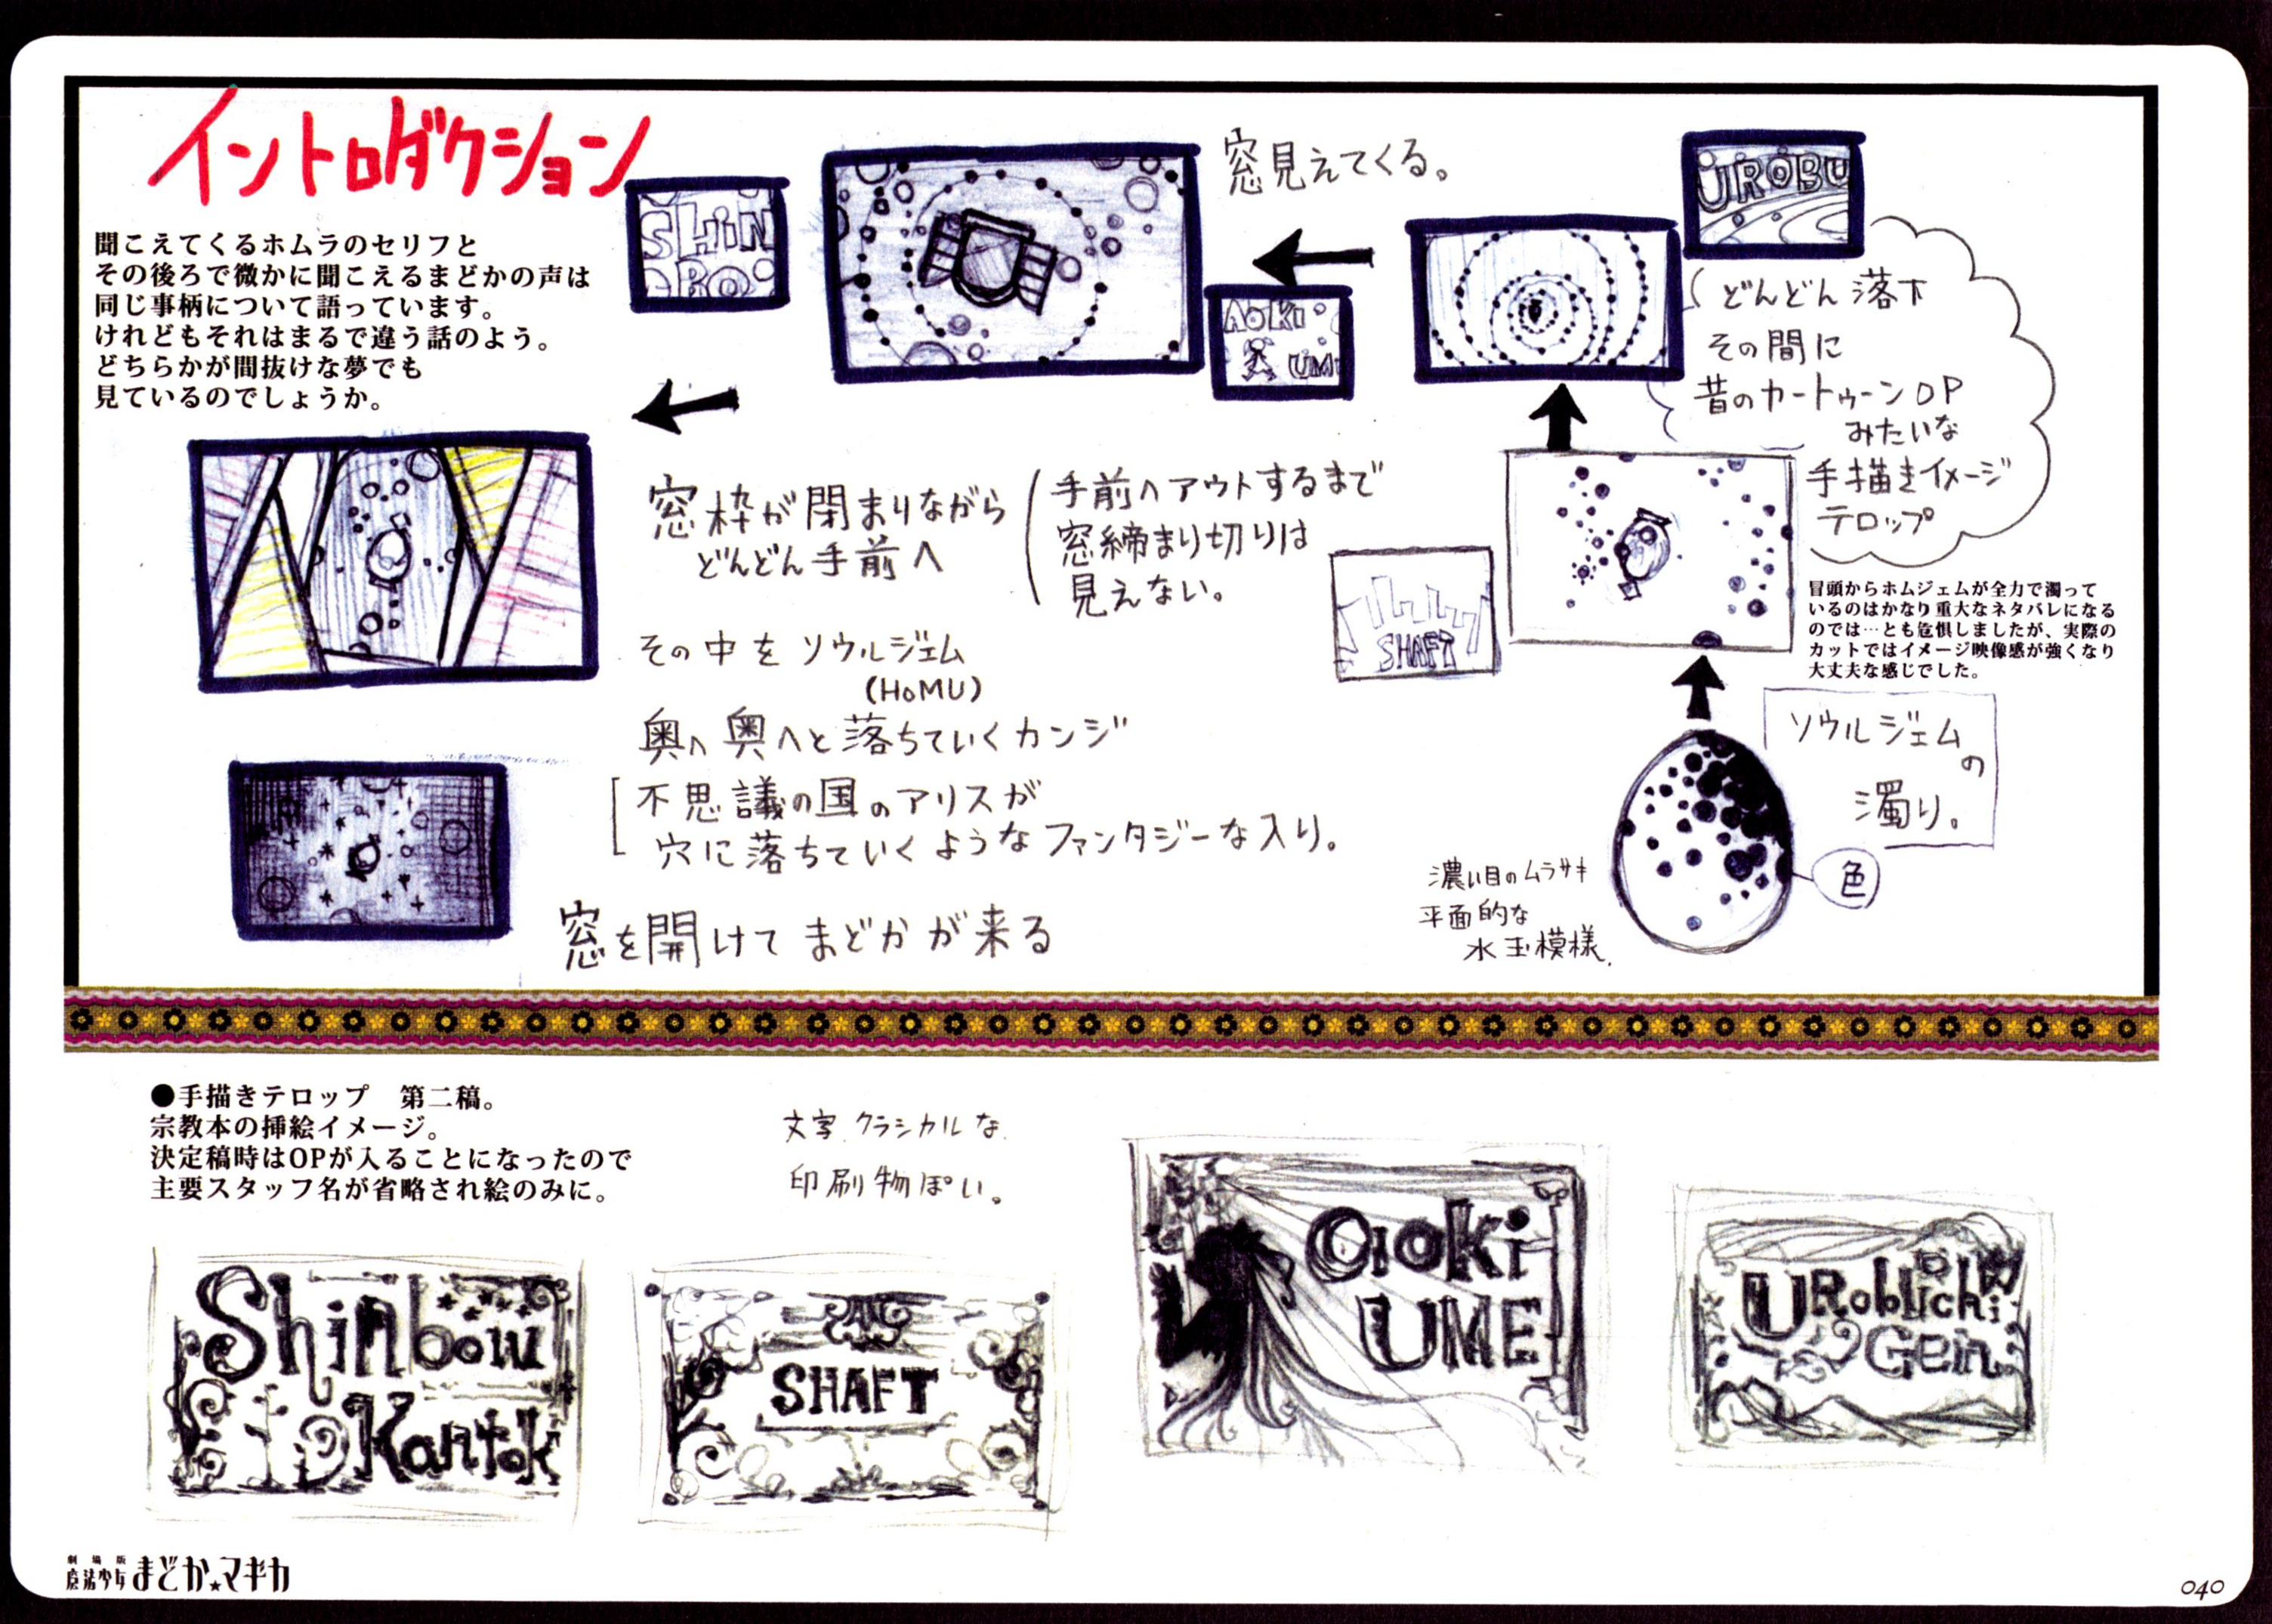 イントロダクション
聞こえてくるホムラのセリフと
その後ろで微かに聞こえるまどかの声は
同じ事柄について語っています。
けれどもそれはまるで違う話のよう。
どちらかが間抜けな夢でも
見ているのでしょうか。
SHiN
BO
窓見えてくる。
AOKi
UM
UROBU
どんどん落下
その間に
昔のカートゥーンOP
みたいな
手描きイメージ
テロップ
窓枠が閉まりながら
どんどん手前へ
手前へアウトするまで
窓締まり切りは
見えない。
SHAFT
冒頭からホムジェムが全力で濁って
いるのはかなり重大なネタバレになる
のでは…とも危惧しましたが、実際の
カットではイメージ映像感が強くなり
大丈夫な感じでした。
その中をソウルジェム
(HoMU)
奥へ奥へと落ちていくカンジ
不思議の国のアリスが
穴に落ちていくようなファンタジーな入り。
窓を開けてまどかが来る
ソウルジェム
の
濁り。
色
濃い目のムラサキ
平面的な
水玉模様.
●手描きテロップ 第二稿。
宗教本の挿絵イメージ。
決定稿時はOPが入ることになったので
主要スタッフ名が省略され絵のみに。
文字.クラシカルな.
印刷物ぽい。
Shinbow
Kantok
SHAFT
aoki
UME
URobuchi
Gen
劇場版
魔法少女まどか★マギカ
040